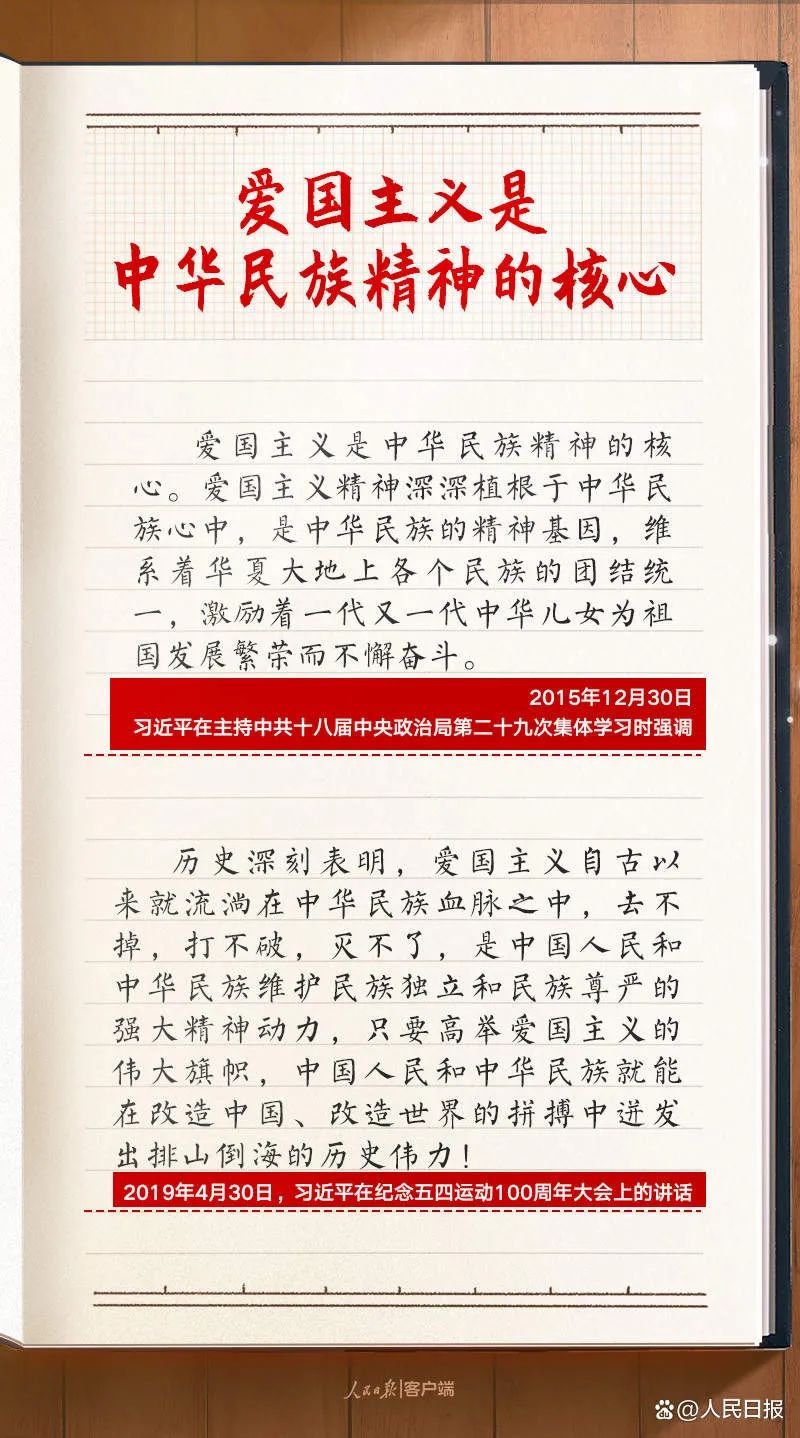 爱国主义是
中华民族精神的核心
爱国主义是中华民族精神的核
心。爱国主义精神深深植根于中华民
族心中，是中华民族的精神基因，维
系着华夏大地上各个民族的团结统
一，激励着一代又一代中华儿女为祖
国发展繁荣而不懈奋斗。
2015年12月30日
习近平在主持中共十八届中央政治局第二十九次集体学习时强调
历史深刻表明，爱国主义自古以
来就流淌在中华民族血脉之中，去不
掉，打不破，灭不了，是中国人民和
中华民族维护民族独立和民族尊严的
强大精神动力，只要高举爱国主义的
伟大旗帜，中国人民和中华民族就能
在改造中国、改造世界的拼搏中迸发
出排山倒海的历史伟力！
2019年4月30日，习近平在纪念五四运动100周年大会上的讲话
人民日报|客户端
@人民日报